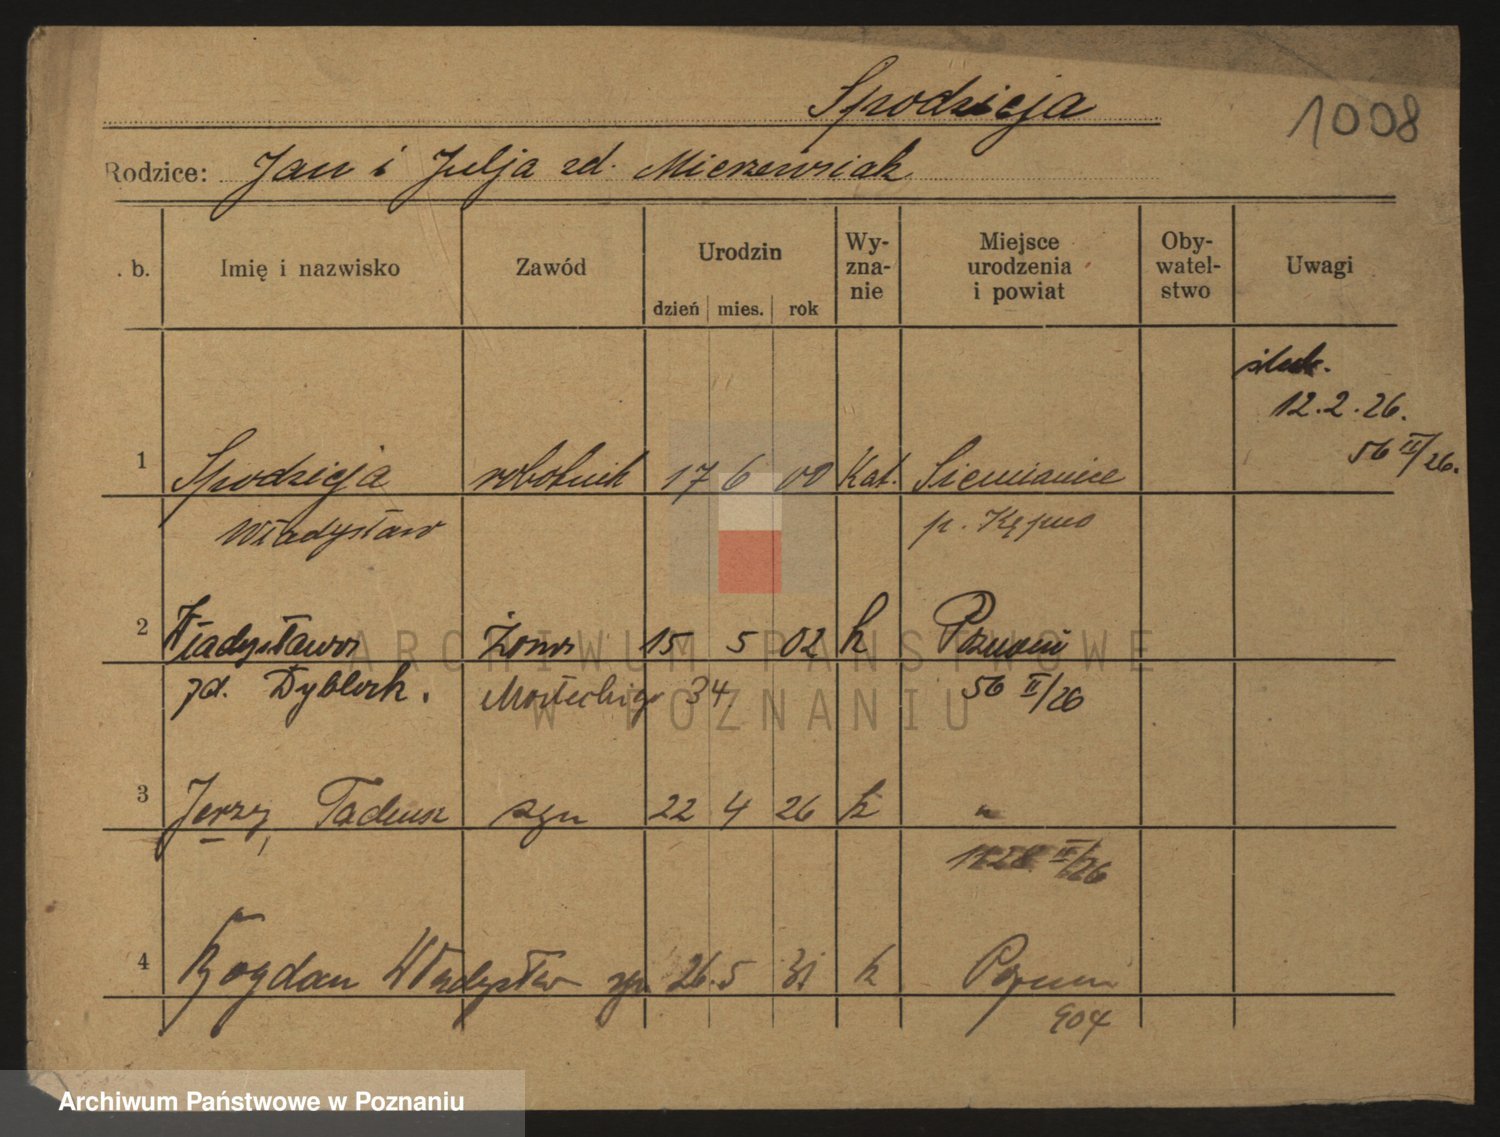 Spodzieja
1008
Rodzice: Jan i Julja zd. Mierzewsiak
. b. Imię i nazwisko Zawód Urodzin dzień mies. rok Wy-zna-nie Miejsce urodzenia i powiat Oby-watel-stwo Uwagi
12.2.26.
56 III/26.
1 Spodzieja robotnik 17 6 00 Kat. Siemianice
Władysław p. Kępno
2 Władysława żona 15 5 02 k Poznań
zd. 34 56 II/26
3 Jerzy, Tadeusz syn 22 4 26 k "
II/26
4 Bogdan Władysław syn 26.5 31 k Poznań
904
ARCHIWUM PAŃSTWOWE
W POZNANIU
Archiwum Państwowe w Poznaniu